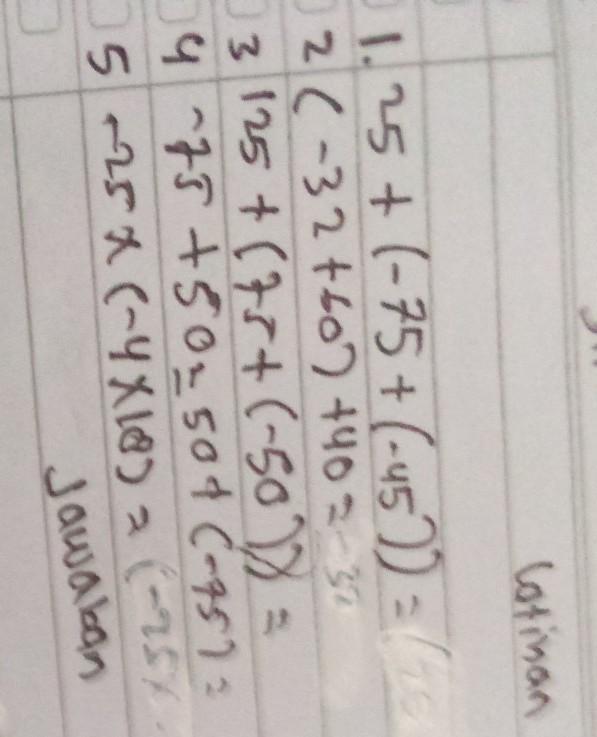 Latihan
1. 25 + (-75 + (-45)) =
2 (-32 + 60) + 40 =
3 125 + (75 + (-50)) =
4 -75 + 50 = 50 + (-75) =
5 -25 x (-4 x 18) = (-25 x
Jawaban